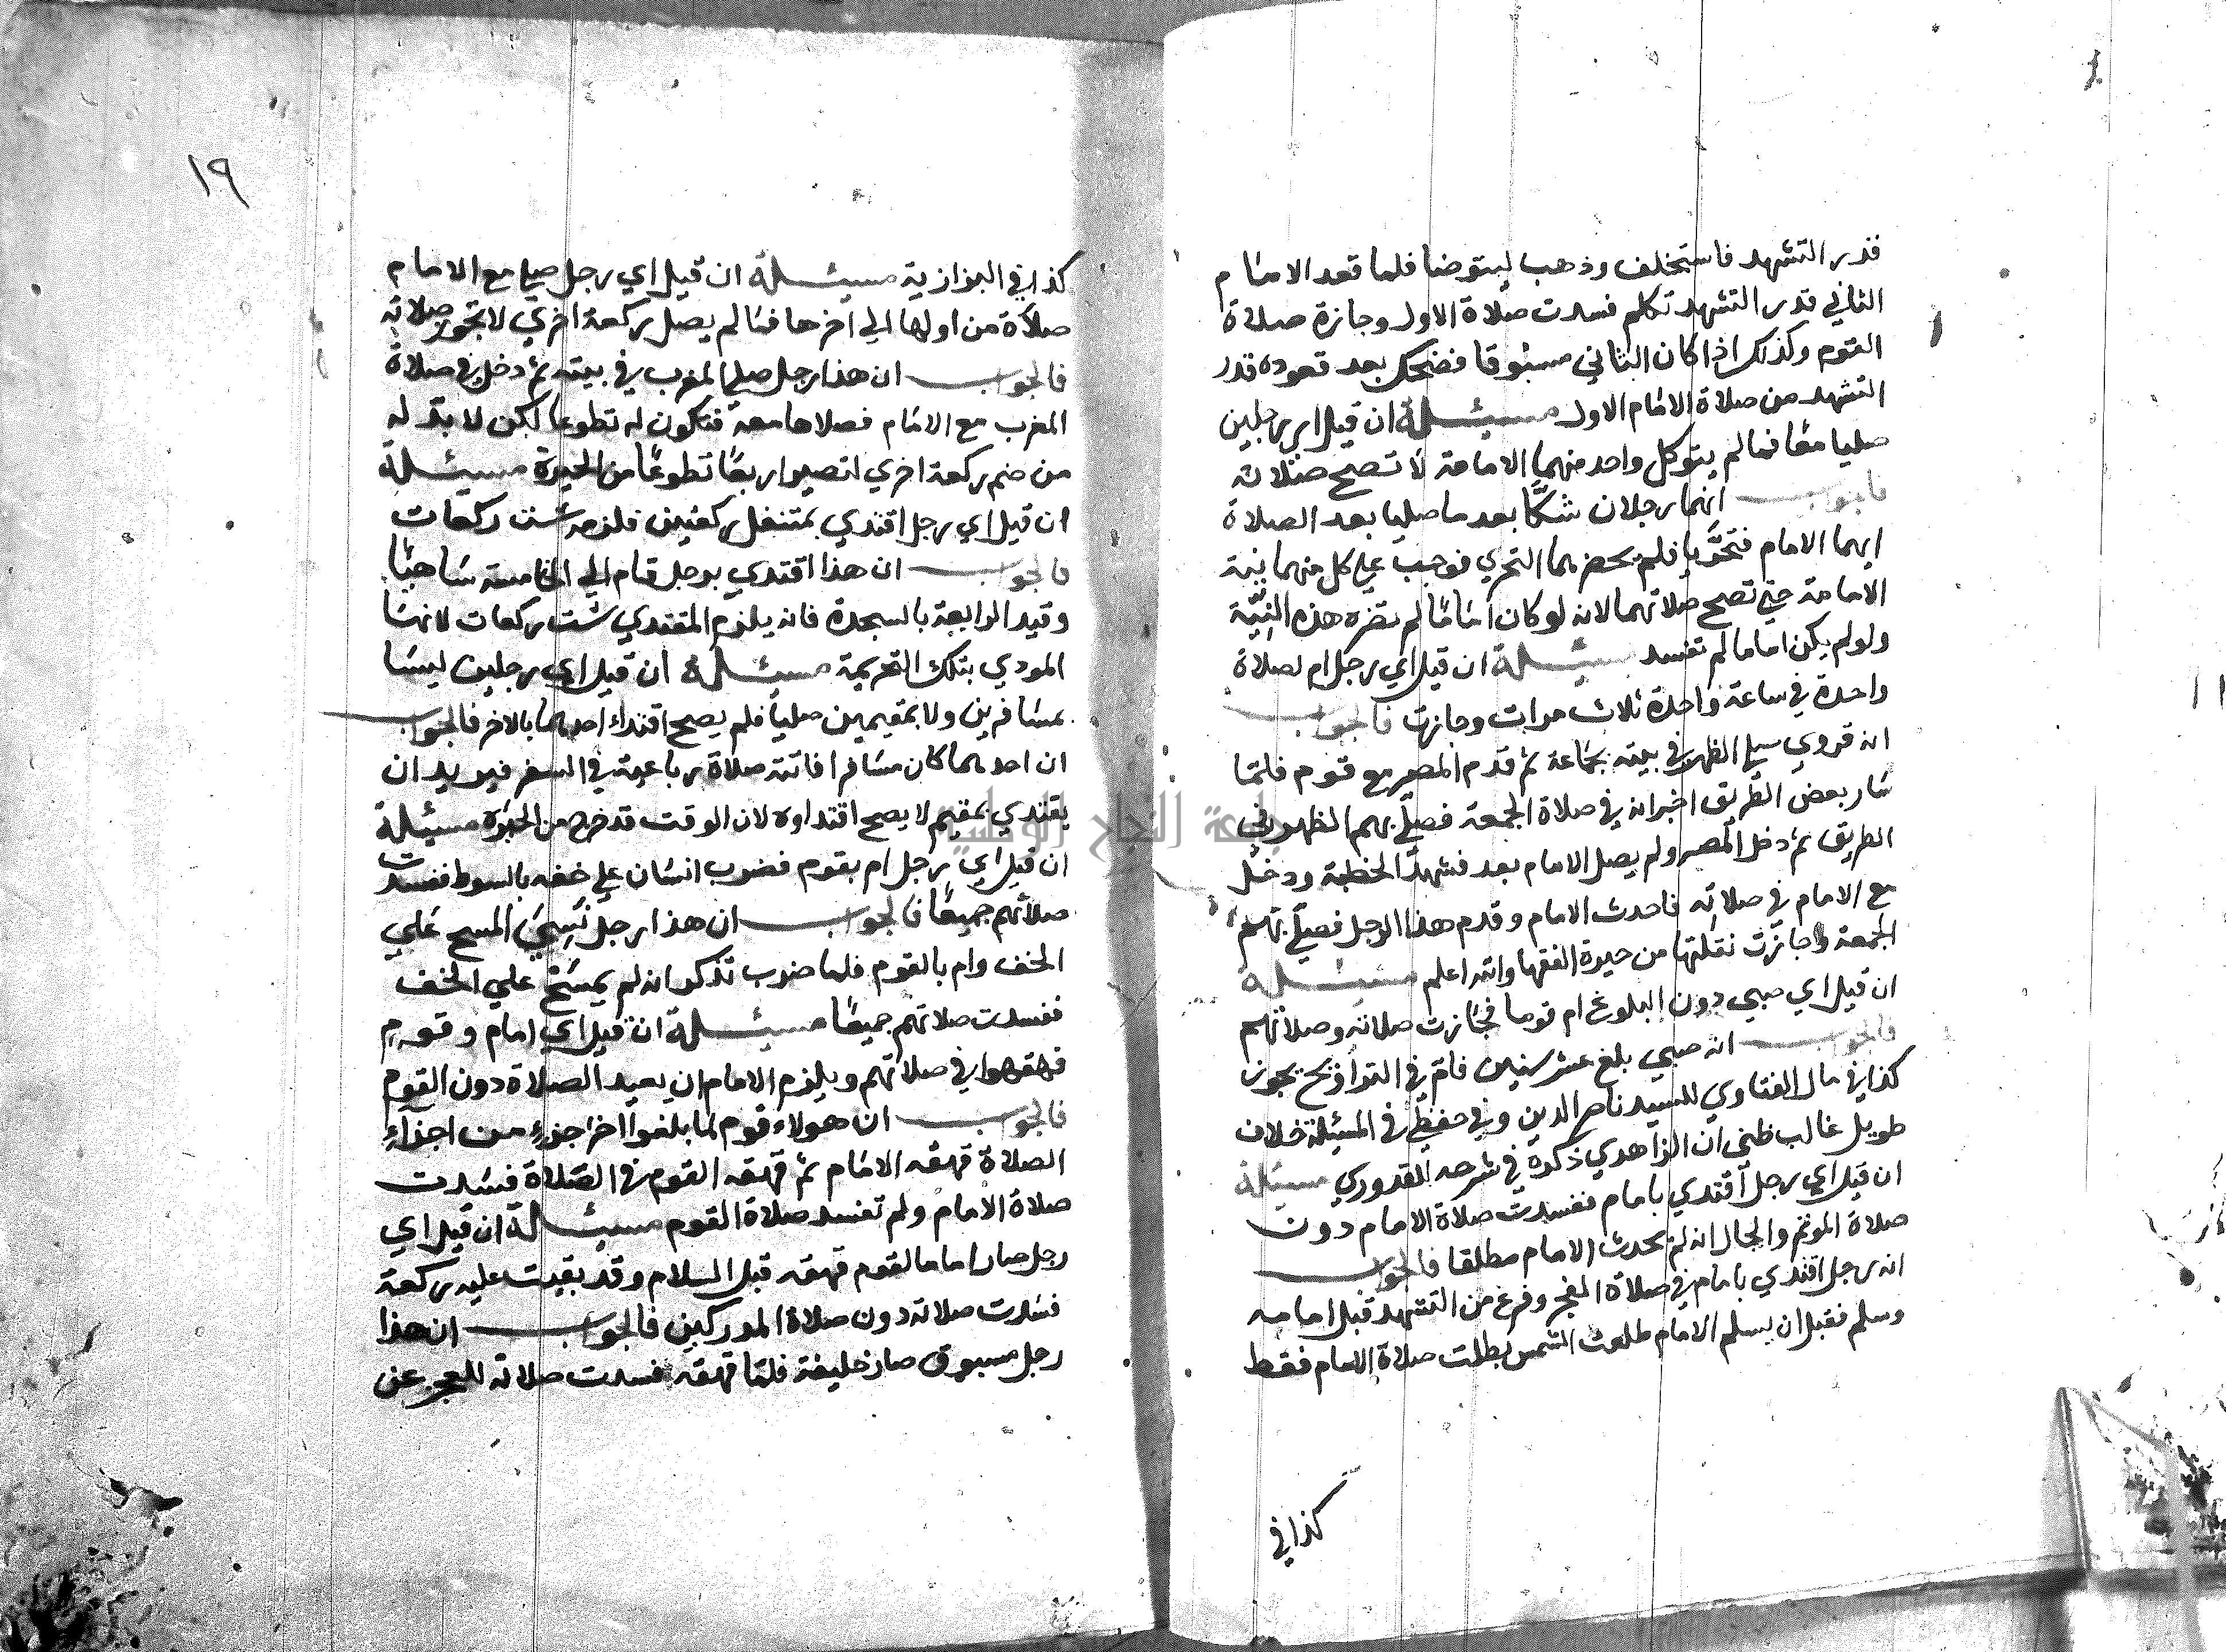 قدر التشهد فاستخلف وذهب ليتوضا فلما قعد الامام
الثاني قدر التشهد تكلم فسدت صلاة الاول وجازة صلاة
القوم وكذلك اذا كان الثاني مسبوقا فضحك بعد قعوده قدر
التشهد من صلاة الامام الاول مسئلة ان قيل اي رجلين
صليا معا فما لم ينو كل واحد منهما الامامة لا تصح صلاته
فالجواب انهما رجلان شكا بعد ما صليا بعد الصلاة
ايهما الامام فتحريا فلم يحضرهما التحري فوجب علي كل منهما نية
الامامة حتي تصح صلاتهما لانه لو كان اماما لم تضره هذه النية
ولو لم يكن اماما لم تفسد مسئلة ان قيل اي رجل ام لصلاة
واحدة في ساعة واحدة ثلاث مرات وجازت فالجواب
انه قروي صلي الظهر في بيته بجماعة ثم قدم المصر مع قوم فلما
سار بعض الطريق اخبر انه في صلاة الجمعة فصلي بهم الظهر في
الطريق ثم دخل المصر ولم يصل الامام بعد فشهد الخطبة ودخل
مع الامام في صلاته فاحدث الامام وقدم هذا الرجل فصلي بهم
الجمعة واجازت نقلتها من حيرة الفقها والله اعلم مسئلة
ان قيل اي صبي دون البلوغ ام قوما فجازت صلاته وصلاتهم
فالجواب انه صبي بلغ عشر سنين فام في التراويح يجوز
كذا في مال الفتاوي للسيد ناصر الدين وفي حفظي في المسئلة خلاف
طويل غالب ظني ان الزاهدي ذكره في شرحه القدوري مسئلة
ان قيل اي رجل اقتدي بامام ففسدت صلاة الامام دون
صلاة الموتم والحال انه لم يحدث الامام مطلقا فالجواب
انه رجل اقتدي بامام في صلاة الفجر وفرغ من التشهد قبل امامه
وسلم فقبل ان يسلم الامام طلعت الشمس بطلت صلاة الامام فقط
كذا في
١٩
كذا في البزازية مسئلة ان قيل اي رجل صلي مع الامام
صلاة من اولها الي اخرها فما لم يصل ركعة اخري لا تجوز صلاته
فالجواب ان هذا رجل صلي المغرب في بيته ثم دخل في صلاة
المغرب مع الامام فصلاها معه فتكون له تطوعا لكن لا بد له
من ضم ركعة اخري لتصير اربعا تطوعا من الحيرة مسئلة
ان قيل اي رجل اقتدي بمتنفل ركعتين فلزمه ست ركعات
فالجواب ان هذا اقتدي برجل قام الي الخامسة ساهيا
وقيد الرابعة بالسجدة فانه يلزم المقتدي ست ركعات لانها
المودي بتلك التحريمة مسئلة ان قيل اي رجلين ليسا
بمسافرين ولا بمقيمين صليا فلم يصح اقتداء احدهما بالاخر فالجواب
ان احدهما كان مسافرا فاتته صلاة رباعية في السفر فيريد ان
يقتدي بمقيم لا يصح اقتداوه لان الوقت قد خرج من الحيرة مسئلة
ان قيل اي رجل ام بقوم فضرب انسان علي خفه بالسوط ففسدت
صلاتهم جميعا فالجواب ان هذا رجل نسي المسح علي
الخف وام بالقوم فلما ضرب تذكر انه لم يمسح علي الخف
ففسدت صلاتهم جميعا مسئلة ان قيل اي امام وقوم
قهقهوا في صلاتهم ويلزم الامام ان يعيد الصلاة دون القوم
فالجواب ان هولاء قوم لما بلغوا اخر اجزء من اجزاء
الصلاة قهقه الامام ثم قهقه القوم في الصلاة فسدت
صلاة الامام ولم تفسد صلاة القوم مسئلة ان قيل اي
رجل صار اماما لقوم قهقه قبل السلام وقد بقيت عليه ركعة
فسدت صلاته دون صلاة المدركين فالجواب ان هذا
رجل مسبوق صار خليفة فلما قهقه فسدت صلاته للعجز عن
جامعة النجاح الوطنية